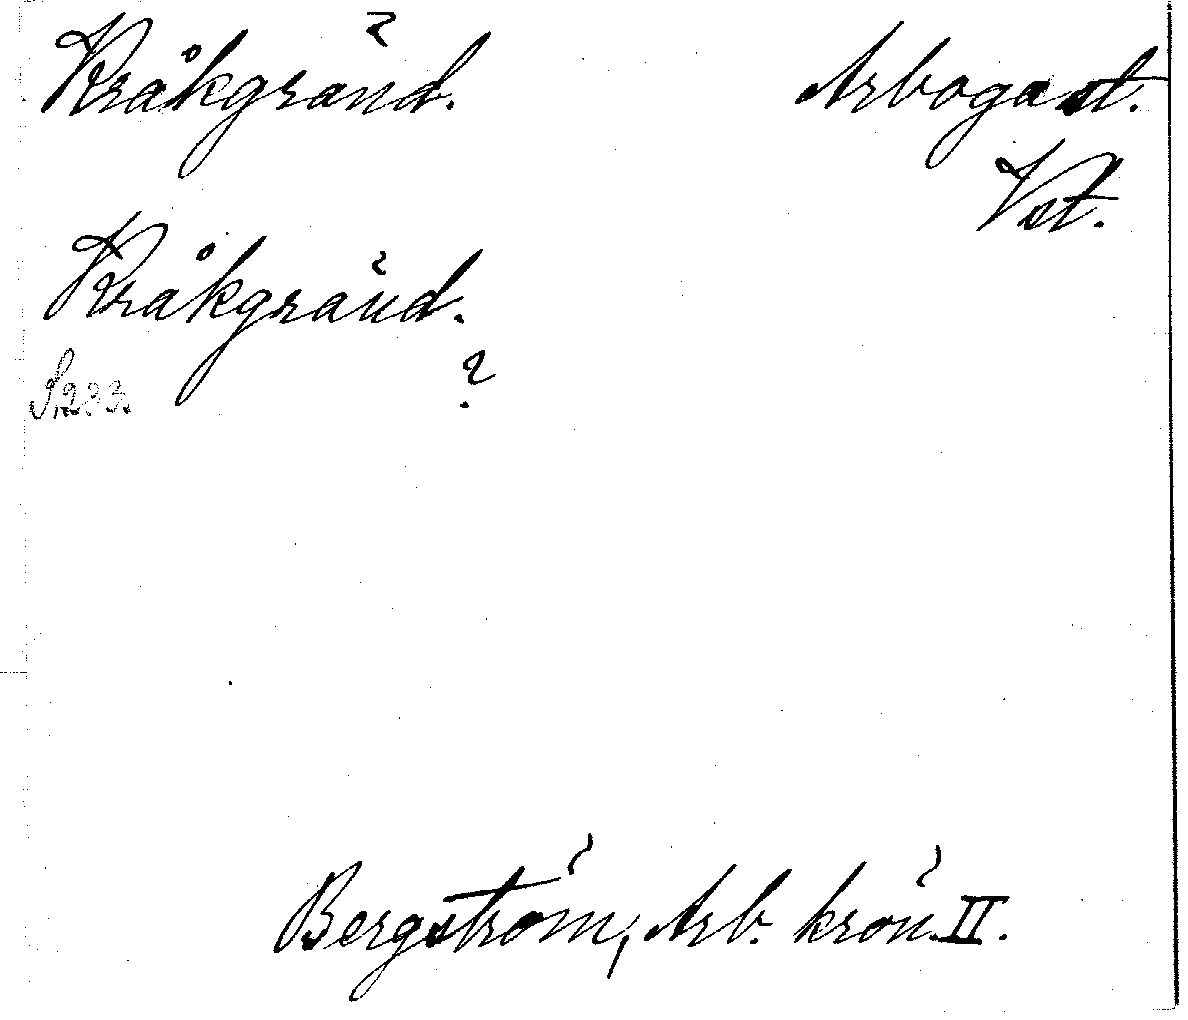 Kråkgränd. Arboga st.
Vst.
Kråkgränd.
S. 233. ?
Bergström, Arb. krön. II.